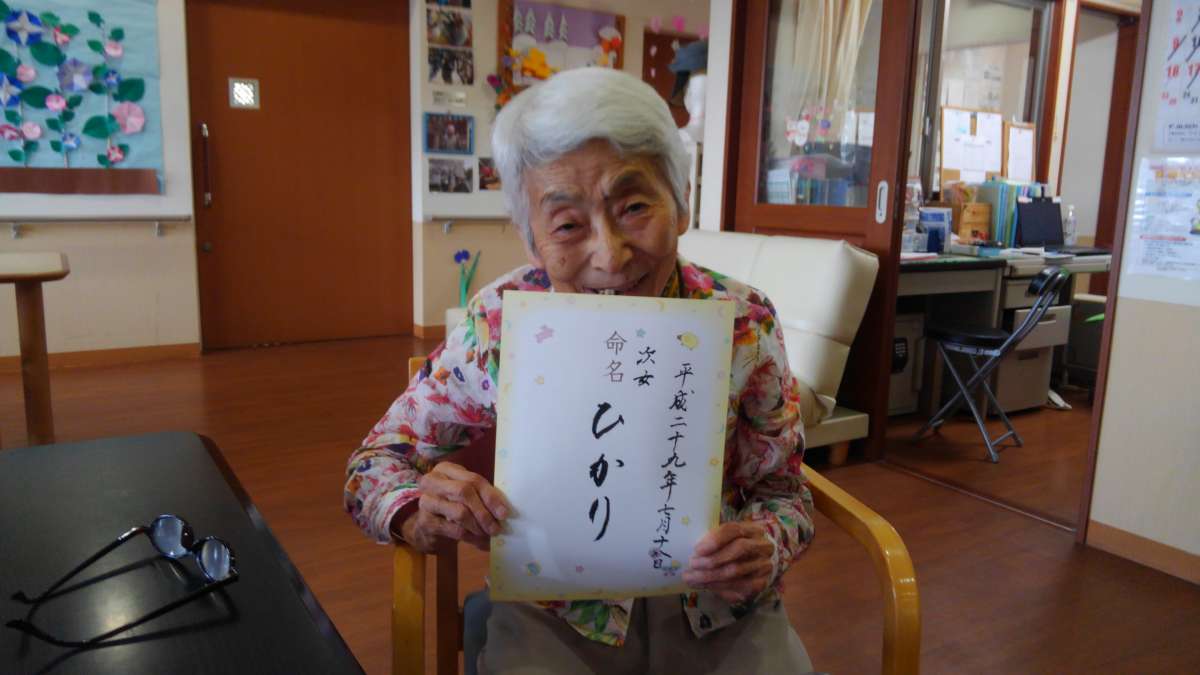 平成二十九年七月十八日
次女
命名
ひかり